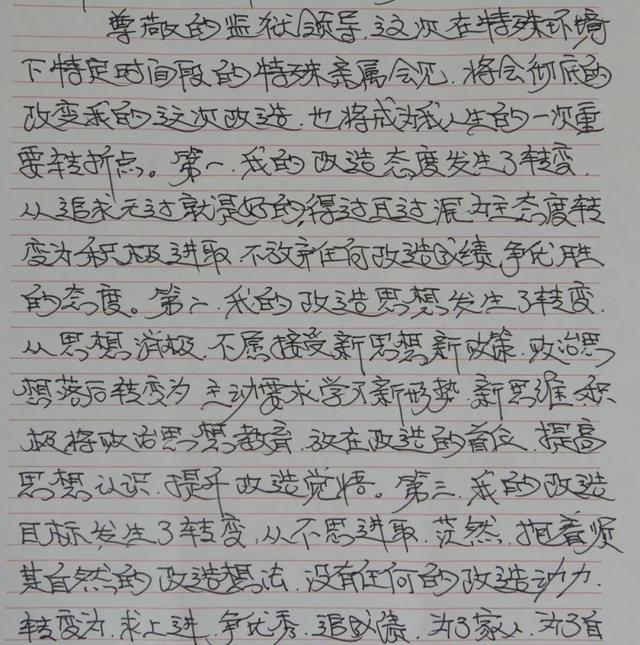 尊敬的监狱领导，这次在特殊环境
下特定时间段的特殊亲属会见，将会彻底的
改变我的这次改造，也将成为我人生的一次重
要转折点。第一，我的改造态度发生了转变，
从追求无过就是好的，得过且过混为主态度转
变为积极进取，不放弃任何改造成绩，争优胜
的态度。第二，我的改造思想发生了转变，
从思想消极，不愿接受新思想新政策，政治思
想落后转变为主动要求学习新形势，新思维，积
极将政治思想教育，放在改造的首位，提高
思想认识，提升改造觉悟。第三，我的改造
目标发生了转变，从不思进取，茫然，抱着顺
其自然的改造想法，没有任何的改造动力，
转变为，求上进，争优秀，追成绩，为了家人，为了自